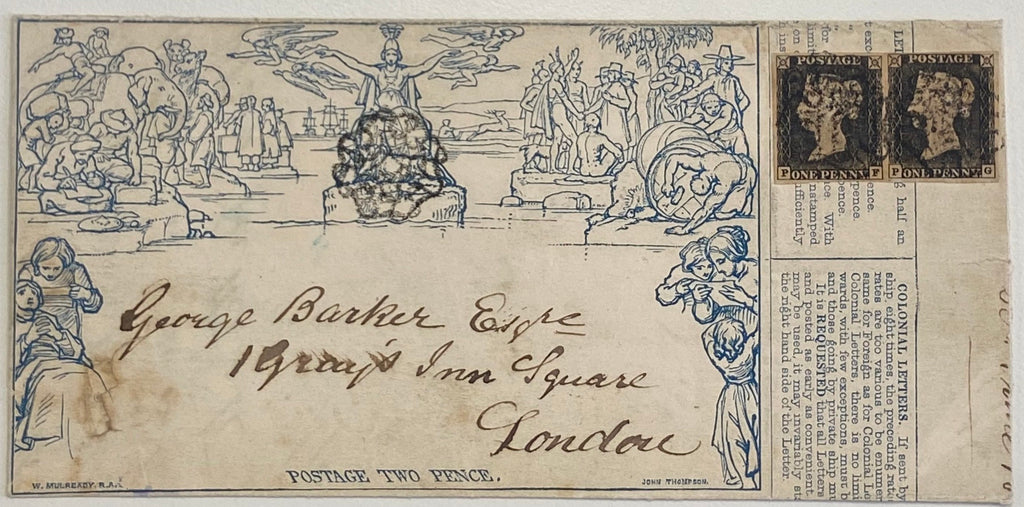 George Barker Esqre
1 Gray's Inn Square
London
POSTAGE TWO PENCE.
W. MULREADY. R.A.
JOHN THOMPSON.
POSTAGE
ONE PENNY
P F
POSTAGE
ONE PENNY
P G
half an
ence.
pence.
pence.
ce. With
unstamped
sufficiently
COLONIAL LETTERS. If sent by
ship, eight times, the preceding rate
rates are too various to be enumer
same for Foreign as for Colonial Le
Colonial Letters, there is no limi
wards, with few exceptions, must b
and those going by private ship mu
It is REQUESTED that all Letters
and posted as early as convenient
may be used, it may invariably sta
the right hand side of the Letter.